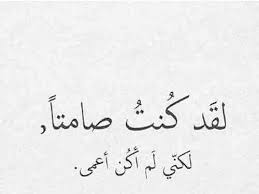 لقَد كُنتُ صامتاً,
لَكنّي لَم أَكُن أعمى.